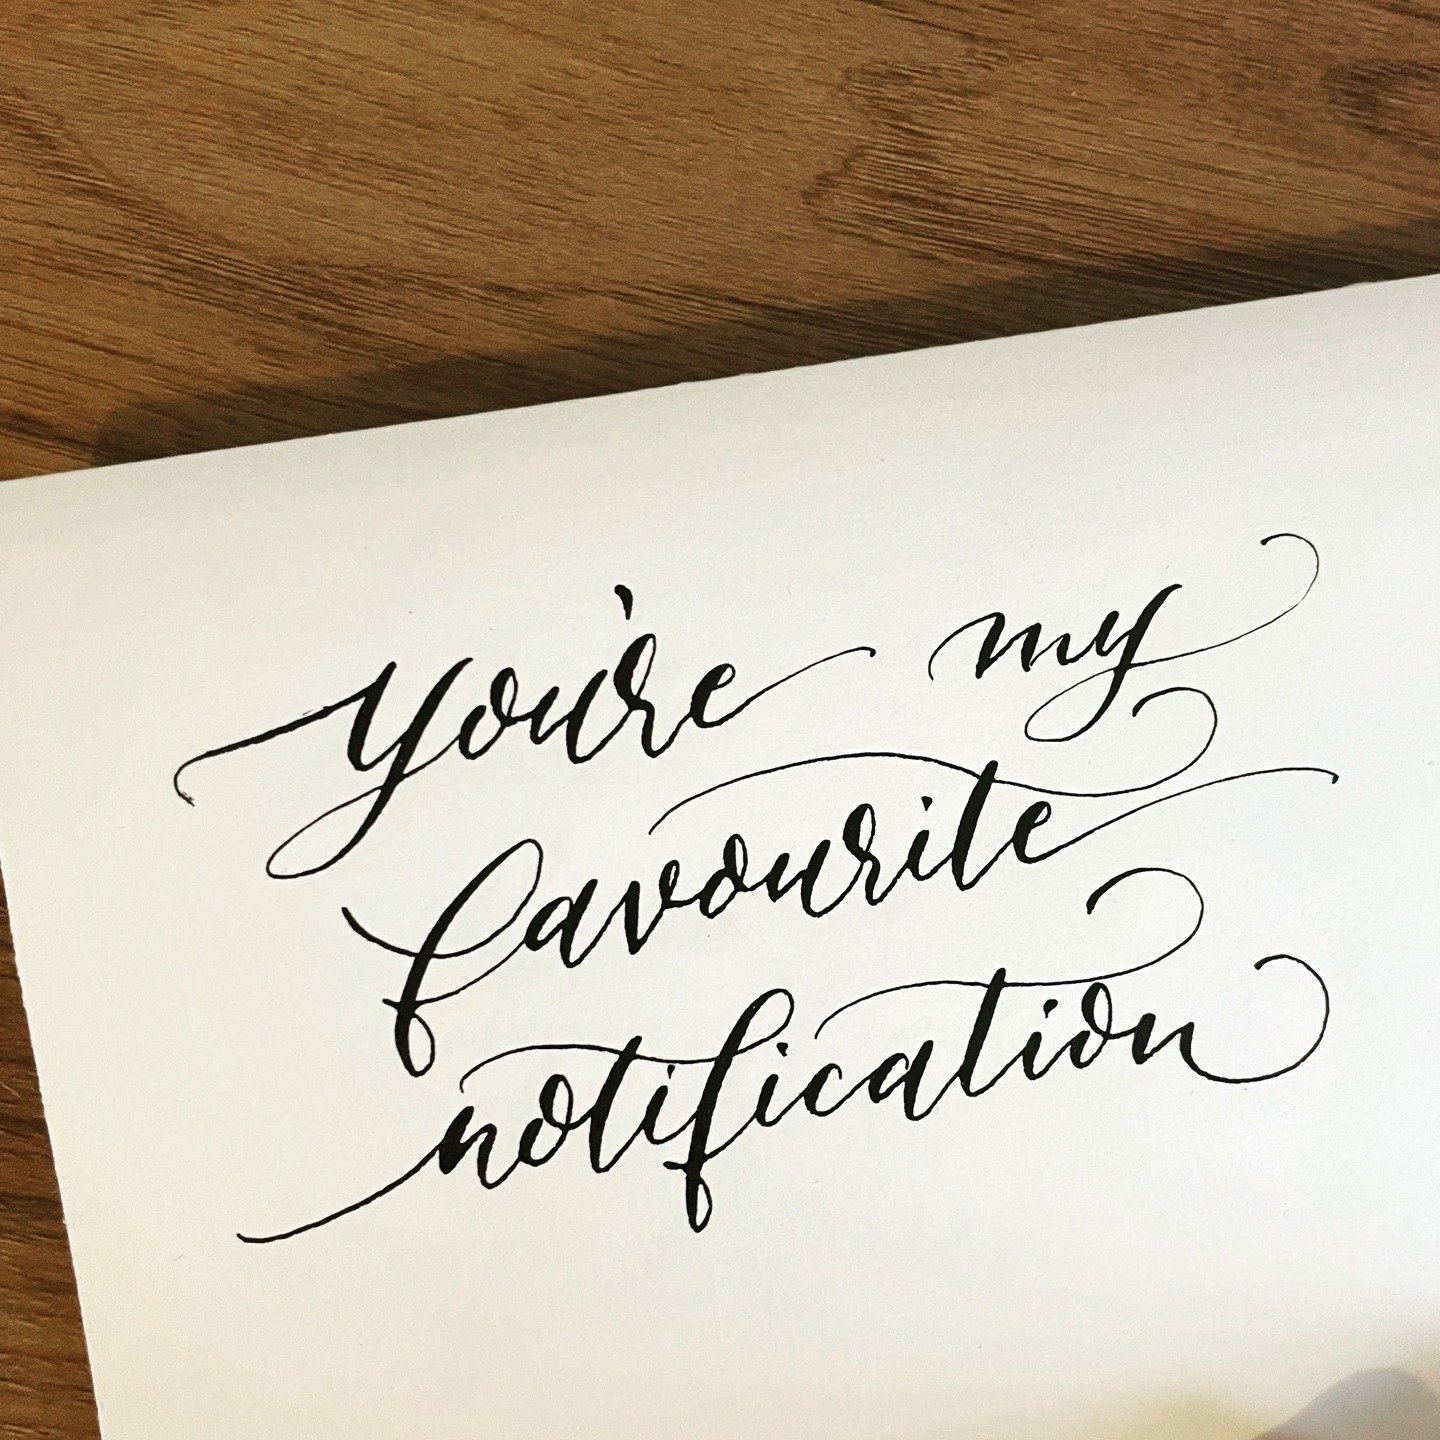 you're my
favourite
notification